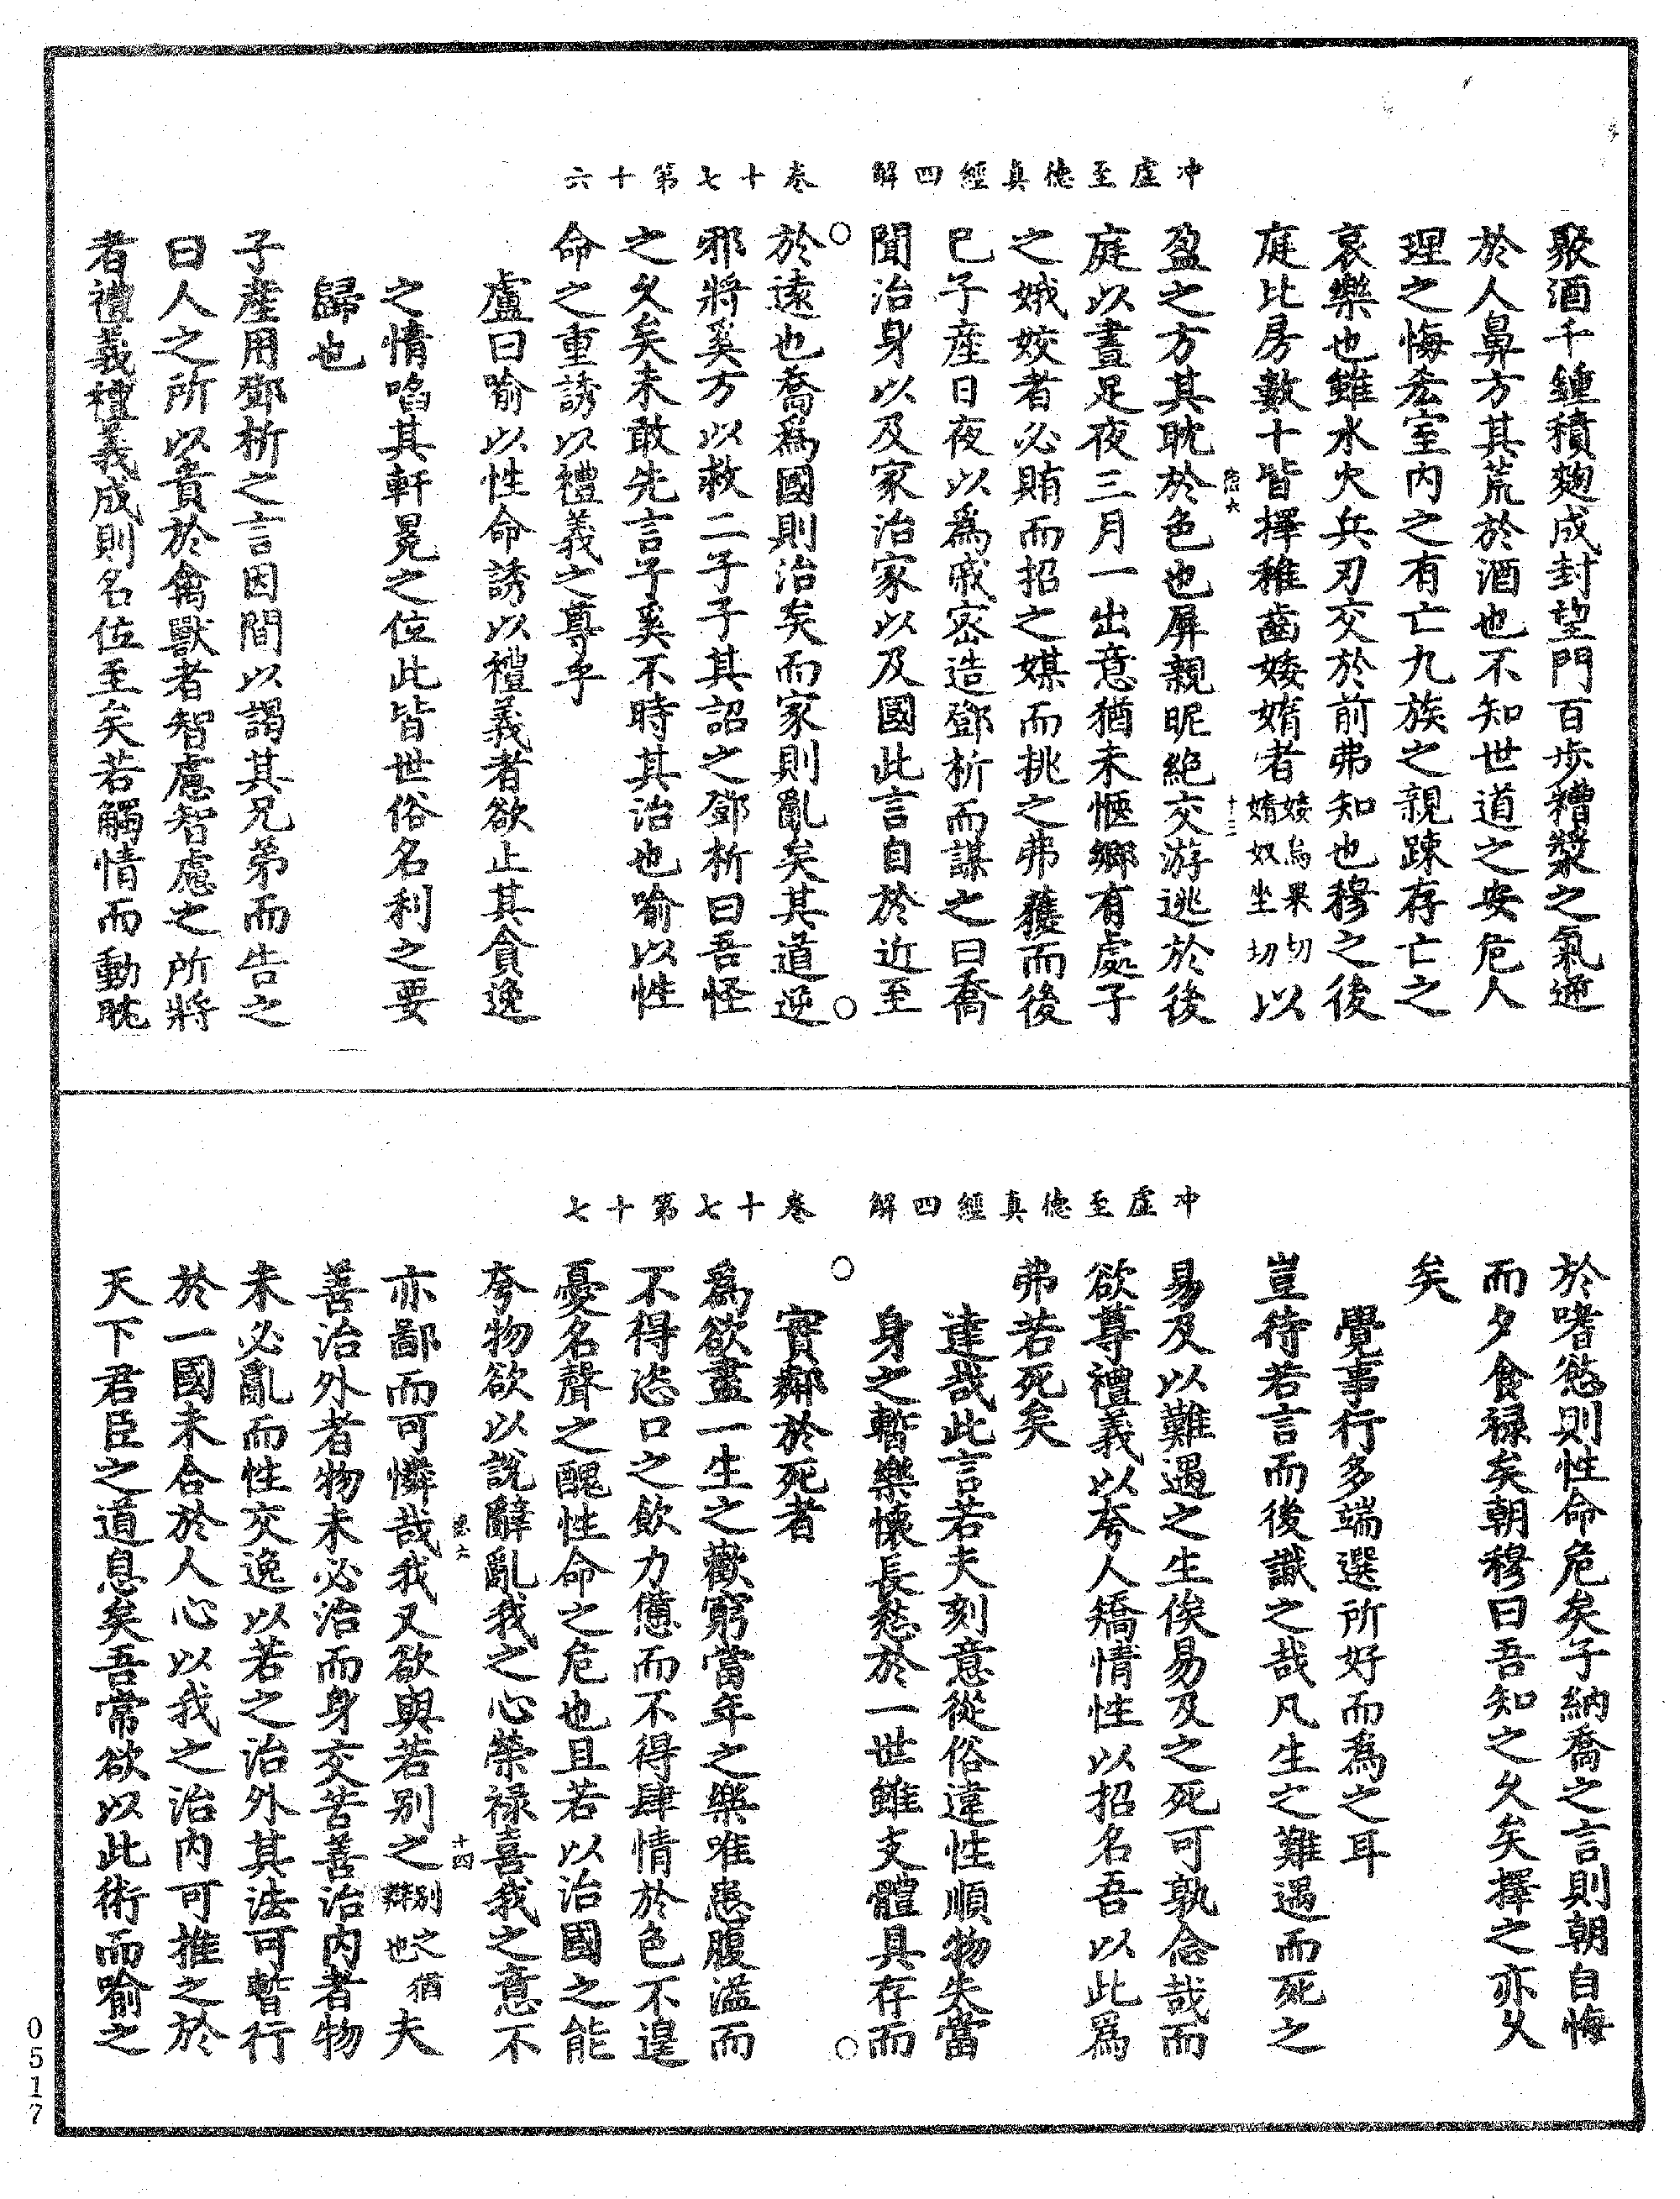 冲虛至德真經四解　卷十七第十六
聚酒千鍾積麴成封望門百步糟漿之氣逆
於人鼻方其荒於酒也不知世道之安危人
理之悔吝室內之有亡九族之親踈存亡之
哀樂也雖水火兵刃交於前弗知也穆之後
庭比房數十皆擇稚齒婑媠者婑烏果切媠奴坐切以
十三
盈之方其耽於色也屏親昵絕交游逃於後
庭以晝足夜三月一出意猶未愜鄉有處子
之娥姣者必賄而招之媒而挑之弗獲而後
已子產日夜以為戚密造鄧析而謀之曰喬
聞治身以及家治家以及國此言自於近至
於遠也喬為國則治矣而家則亂矣其道逆
邪將奚方以救二子子其詔之鄧析曰吾怪
之久矣未敢先言子奚不時其治也喻以性
命之重誘以禮義之尊乎
盧曰喻以性命誘以禮義者欲止其貪逸
之情啗其軒冕之位此皆世俗名利之要
歸也
子產用鄧析之言因間以謁其兄弟而告之
曰人之所以貴於禽獸者智慮智慮之所將
者禮義禮義成則名位至矣若觸情而動耽
冲虛至德真經四解　卷十七第十七
於嗜慾則性命危矣子納喬之言則朝自悔
而夕食祿矣朝穆曰吾知之久矣擇之亦久
矣
覺事行多端選所好而為之耳
豈待若言而後識之哉凡生之難遇而死之
易及以難遇之生俟易及之死可孰念哉而
欲尊禮義以夸人矯情性以招名吾以此為
弗若死矣
達哉此言若夫刻意從俗違性順物失當
身之暫樂懷長愁於一世雖支體具存而
實鄰於死者
為欲盡一生之歡窮當年之樂唯患腹溢而
不得恣口之飲力憊而不得肆情於色不遑
憂名聲之醜性命之危也且若以治國之能
夸物欲以說辭亂我之心榮祿喜我之意不
十四
亦鄙而可憐哉我又欲與若別之別之猶辯也夫
善治外者物未必治而身交苦善治內者物
未必亂而性交逸以若之治外其法可暫行
於一國未合於人心以我之治內可推之於
天下君臣之道息矣吾常欲以此術而喻之
0517